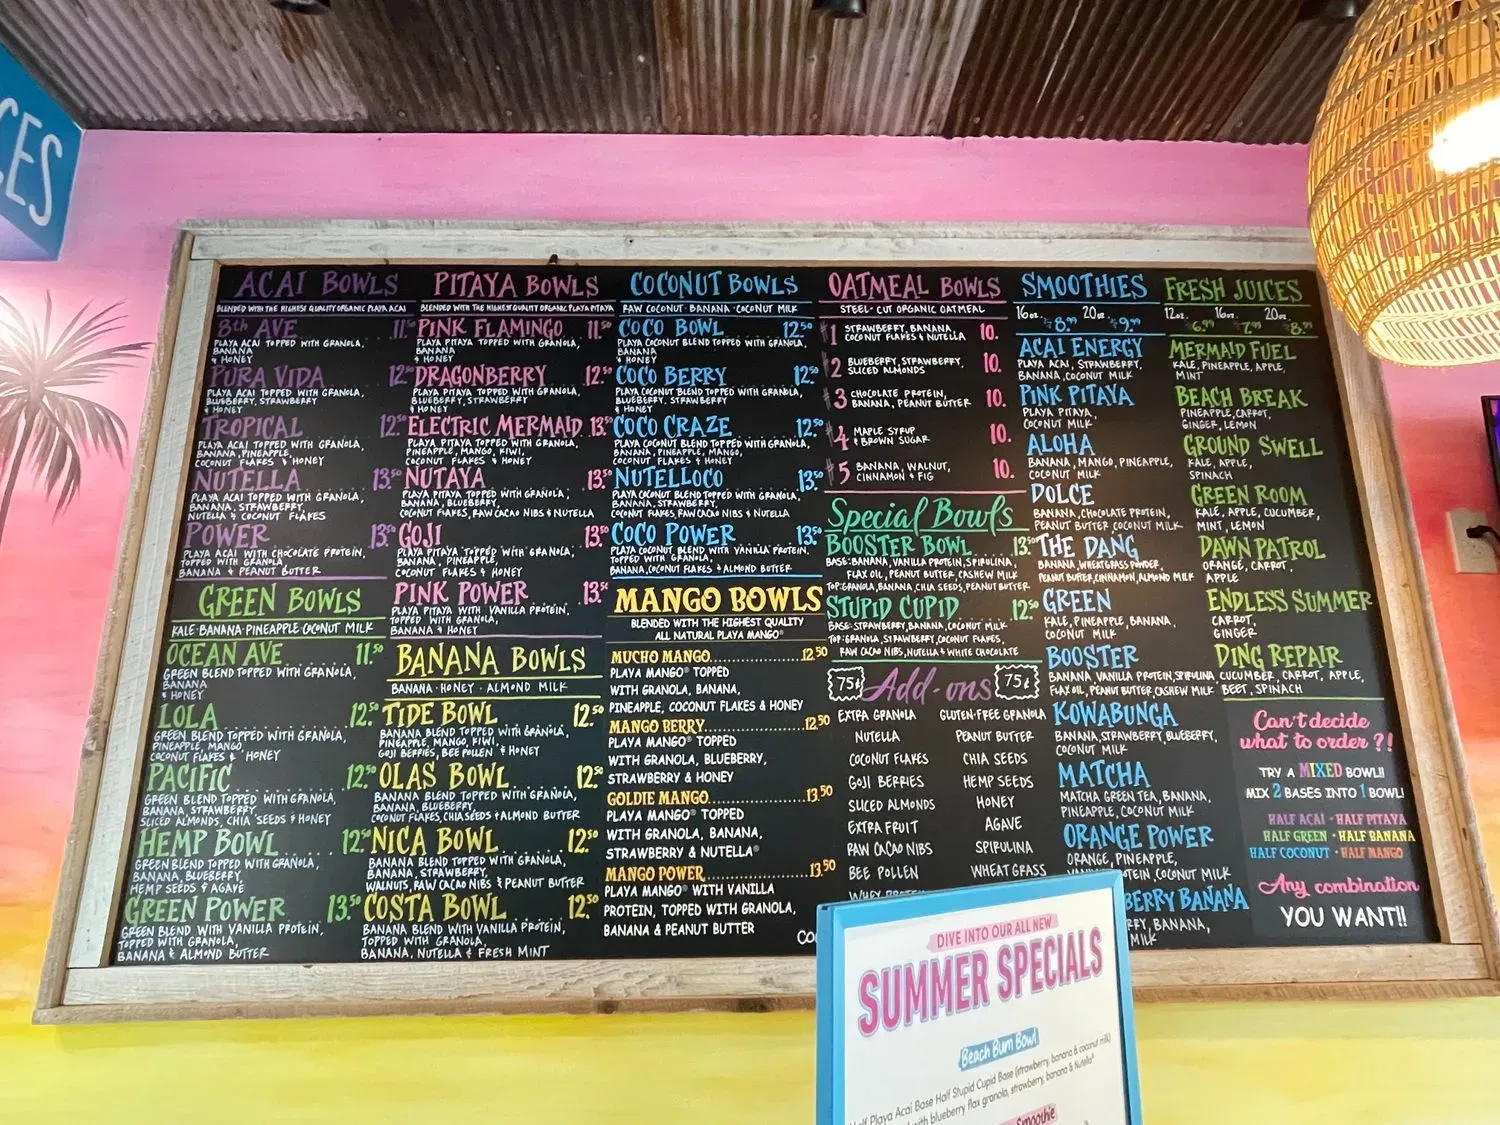 CES
ACAI BOWLS
BLENDED WITH THE HIGHEST QUALITY ORGANIC PLAYA ACAI
8th AVE 11.50
PLAYA ACAI TOPPED WITH GRANOLA,
BANANA
& HONEY
PURA VIDA 12.50
PLAYA ACAI TOPPED WITH GRANOLA,
BLUEBERRY, STRAWBERRY
& HONEY
TROPICAL 12.50
PLAYA ACAI TOPPED WITH GRANOLA,
BANANA, PINEAPPLE,
COCONUT FLAKES & HONEY
NUTELLA 13.50
PLAYA ACAI TOPPED WITH GRANOLA,
BANANA, STRAWBERRY,
NUTELLA & COCONUT FLAKES
POWER 13.50
PLAYA ACAI WITH CHOCOLATE PROTEIN,
TOPPED WITH GRANOLA,
BANANA & PEANUT BUTTER
GREEN BOWLS
KALE·BANANA·PINEAPPLE·COCONUT MILK
OCEAN AVE 11.50
GREEN BLEND TOPPED WITH GRANOLA,
BANANA
& HONEY
LOLA 12.50
GREEN BLEND TOPPED WITH GRANOLA,
PINEAPPLE, MANGO,
COCONUT FLAKES & HONEY
PACIFIC 12.50
GREEN BLEND TOPPED WITH GRANOLA,
BANANA, STRAWBERRY,
SLICED ALMONDS, CHIA SEEDS & HONEY
HEMP BOWL 12.50
GREEN BLEND TOPPED WITH GRANOLA,
BANANA, BLUEBERRY,
HEMP SEEDS & AGAVE
GREEN POWER 13.50
GREEN BLEND WITH VANILLA PROTEIN,
TOPPED WITH GRANOLA,
BANANA & ALMOND BUTTER
PITAYA BOWLS
BLENDED WITH THE HIGHEST QUALITY ORGANIC PLAYA PITAYA
PINK FLAMINGO 11.50
PLAYA PITAYA TOPPED WITH GRANOLA,
BANANA
& HONEY
DRAGONBERRY 12.50
PLAYA PITAYA TOPPED WITH GRANOLA,
BLUEBERRY, STRAWBERRY
& HONEY
ELECTRIC MERMAID 13.50
PLAYA PITAYA TOPPED WITH GRANOLA,
PINEAPPLE, MANGO, KIWI,
COCONUT FLAKES & HONEY
NUTAYA 13.50
PLAYA PITAYA TOPPED WITH GRANOLA,
BANANA, BLUEBERRY,
COCONUT FLAKES, RAW CACAO NIBS & NUTELLA
GOJI 13.50
PLAYA PITAYA TOPPED WITH GRANOLA,
BANANA, PINEAPPLE,
COCONUT FLAKES & HONEY
PINK POWER 13.50
PLAYA PITAYA WITH VANILLA PROTEIN,
TOPPED WITH GRANOLA,
BANANA & HONEY
BANANA BOWLS
BANANA · HONEY · ALMOND MILK
TIDE BOWL 12.50
BANANA BLEND TOPPED WITH GRANOLA,
PINEAPPLE, MANGO, KIWI,
GOJI BERRIES, BEE POLLEN & HONEY
OLAS BOWL 12.50
BANANA BLEND TOPPED WITH GRANOLA,
BANANA, BLUEBERRY,
COCONUT FLAKES, CHIA SEEDS & ALMOND BUTTER
NICA BOWL 12.50
BANANA BLEND TOPPED WITH GRANOLA,
BANANA, STRAWBERRY,
WALNUTS, RAW CACAO NIBS & PEANUT BUTTER
COSTA BOWL 12.50
BANANA BLEND WITH VANILLA PROTEIN,
TOPPED WITH GRANOLA,
BANANA, NUTELLA & FRESH MINT
COCONUT BOWLS
RAW COCONUT · BANANA · COCONUT MILK
COCO BOWL 12.50
PLAYA COCONUT BLEND TOPPED WITH GRANOLA,
BANANA
& HONEY
COCO BERRY 12.50
PLAYA COCONUT BLEND TOPPED WITH GRANOLA,
BLUEBERRY, STRAWBERRY
& HONEY
COCO CRAZE 12.50
PLAYA COCONUT BLEND TOPPED WITH GRANOLA,
BANANA, PINEAPPLE, MANGO,
COCONUT FLAKES & HONEY
NUTELLOCO 13.50
PLAYA COCONUT BLEND TOPPED WITH GRANOLA,
BANANA, STRAWBERRY,
COCONUT FLAKES, RAW CACAO NIBS & NUTELLA
COCO POWER 13.50
PLAYA COCONUT BLEND WITH VANILLA PROTEIN,
TOPPED WITH GRANOLA,
BANANA, COCONUT FLAKES & ALMOND BUTTER
MANGO BOWLS
BLENDED WITH THE HIGHEST QUALITY
ALL NATURAL PLAYA MANGO®
MUCHO MANGO 12.50
PLAYA MANGO® TOPPED
WITH GRANOLA, BANANA,
PINEAPPLE, COCONUT FLAKES & HONEY
MANGO BERRY 12.50
PLAYA MANGO® TOPPED
WITH GRANOLA, BLUEBERRY,
STRAWBERRY & HONEY
GOLDIE MANGO 13.50
PLAYA MANGO® TOPPED
WITH GRANOLA, BANANA,
STRAWBERRY & NUTELLA®
MANGO POWER 13.50
PLAYA MANGO® WITH VANILLA
PROTEIN, TOPPED WITH GRANOLA,
BANANA & PEANUT BUTTER
OATMEAL BOWLS
STEEL-CUT ORGANIC OATMEAL
#1 STRAWBERRY, BANANA 10.
COCONUT FLAKES & NUTELLA
#2 BLUEBERRY, STRAWBERRY, 10.
SLICED ALMONDS
#3 CHOCOLATE PROTEIN, 10.
BANANA, PEANUT BUTTER
#4 MAPLE SYRUP 10.
& BROWN SUGAR
#5 BANANA, WALNUT, 10.
CINNAMON & FIG
Special Bowls
BOOSTER BOWL 13.50
BASE: BANANA, VANILLA PROTEIN, SPIRULINA,
FLAX OIL, PEANUT BUTTER, CASHEW MILK
TOP: GRANOLA, BANANA, CHIA SEEDS, PEANUT BUTTER
STUPID CUPID 12.50
BASE: STRAWBERRY, BANANA, COCONUT MILK
TOP: GRANOLA, STRAWBERRY, COCONUT FLAKES,
RAW CACAO NIBS, NUTELLA & WHITE CHOCOLATE
75¢ Add-ons 75¢
EXTRA GRANOLA
NUTELLA
COCONUT FLAKES
GOJI BERRIES
SLICED ALMONDS
EXTRA FRUIT
RAW CACAO NIBS
BEE POLLEN
WHEY PROTEIN
GLUTEN-FREE GRANOLA
PEANUT BUTTER
CHIA SEEDS
HEMP SEEDS
HONEY
AGAVE
SPIRULINA
WHEAT GRASS
CO
SMOOTHIES
16oz. 8.99 20oz. 9.99
ACAI ENERGY
PLAYA ACAI, STRAWBERRY,
BANANA, COCONUT MILK
PINK PITAYA
PLAYA PITAYA,
COCONUT MILK
ALOHA
BANANA, MANGO, PINEAPPLE,
COCONUT MILK
DOLCE
BANANA, CHOCOLATE PROTEIN,
PEANUT BUTTER COCONUT MILK
THE DANG
BANANA, WHEATGRASS POWDER,
PEANUT BUTTER, CINNAMON, ALMOND MILK
GREEN
KALE, PINEAPPLE, BANANA,
COCONUT MILK
BOOSTER
BANANA, VANILLA PROTEIN, SPIRULINA
FLAX OIL, PEANUT BUTTER, CASHEW MILK
KOWABUNGA
BANANA, STRAWBERRY, BLUEBERRY,
COCONUT MILK
MATCHA
MATCHA GREEN TEA, BANANA,
PINEAPPLE, COCONUT MILK
ORANGE POWER
ORANGE, PINEAPPLE,
VANILLA PROTEIN, COCONUT MILK
BERRY BANANA
RRY, BANANA,
MILK
FRESH JUICES
12oz. 6.99 16oz. 7.99 20oz. 8.99
MERMAID FUEL
KALE, PINEAPPLE, APPLE,
MINT
BEACH BREAK
PINEAPPLE, CARROT,
GINGER, LEMON
GROUND SWELL
KALE, APPLE,
SPINACH
GREEN ROOM
KALE, APPLE, CUCUMBER,
MINT, LEMON
DAWN PATROL
ORANGE, CARROT,
APPLE
ENDLESS SUMMER
CARROT,
GINGER
DING REPAIR
CUCUMBER, CARROT, APPLE,
BEET, SPINACH
Can't decide
what to order?!
TRY A MIXED BOWL!!
MIX 2 BASES INTO 1 BOWL!
HALF ACAI · HALF PITAYA
HALF GREEN · HALF BANANA
HALF COCONUT · HALF MANGO
Any combination
YOU WANT!!
DIVE INTO OUR ALL NEW
SUMMER SPECIALS
Beach Bum Bowl
Half Playa Acai Base Half Stupid Cupid Base (strawberry, banana & coconut milk)
with blueberry flax granola, strawberry, banana & Nutella®
Smoothie